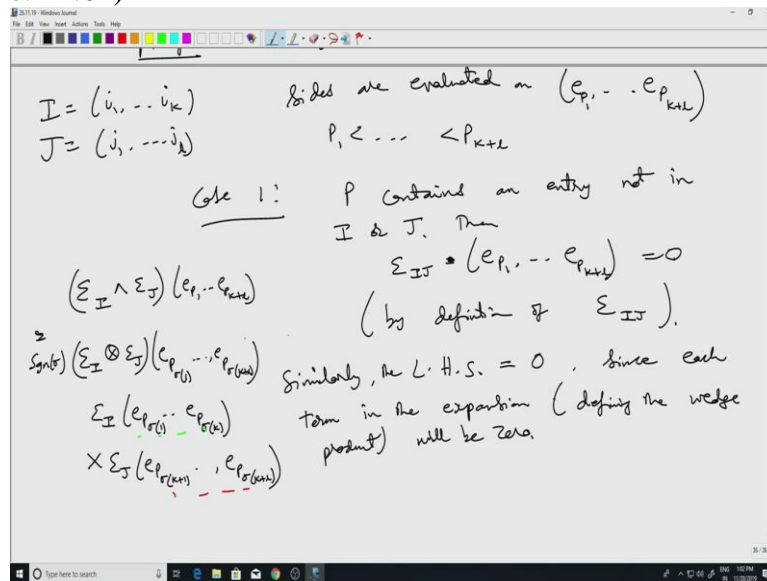 26.11.19 - Windows Journal
File Edit View Insert Actions Tools Help
I = (i₁, ... iₖ)
J = (j₁, ... jₗ)
sides are evaluated on (e_{p₁} ... e_{p_{k+l}})
p₁ < ... < p_{k+l}
Case 1: P contains an entry not in
I or J. Then
ε_{IJ} (e_{p₁}, ... e_{p_{k+l}}) = 0
(by definition of ε_{IJ}).
Similarly, the L.H.S. = 0, since each
term in the expansion (defining the wedge
product) will be zero.
(ε_I ∧ ε_J)(e_{p₁} ... e_{p_{k+l}})
Sgn(σ) (ε_I ⊗ ε_J)(e_{p_{σ(1)}} ..., e_{p_{σ(k+l)}})
ε_I (e_{p_{σ(1)}} ... e_{p_{σ(k)}})
× ε_J (e_{p_{σ(k+1)}} ..., e_{p_{σ(k+l)}})
36/36
Type here to search
ENG 1:02 PM
IN 11/28/2019